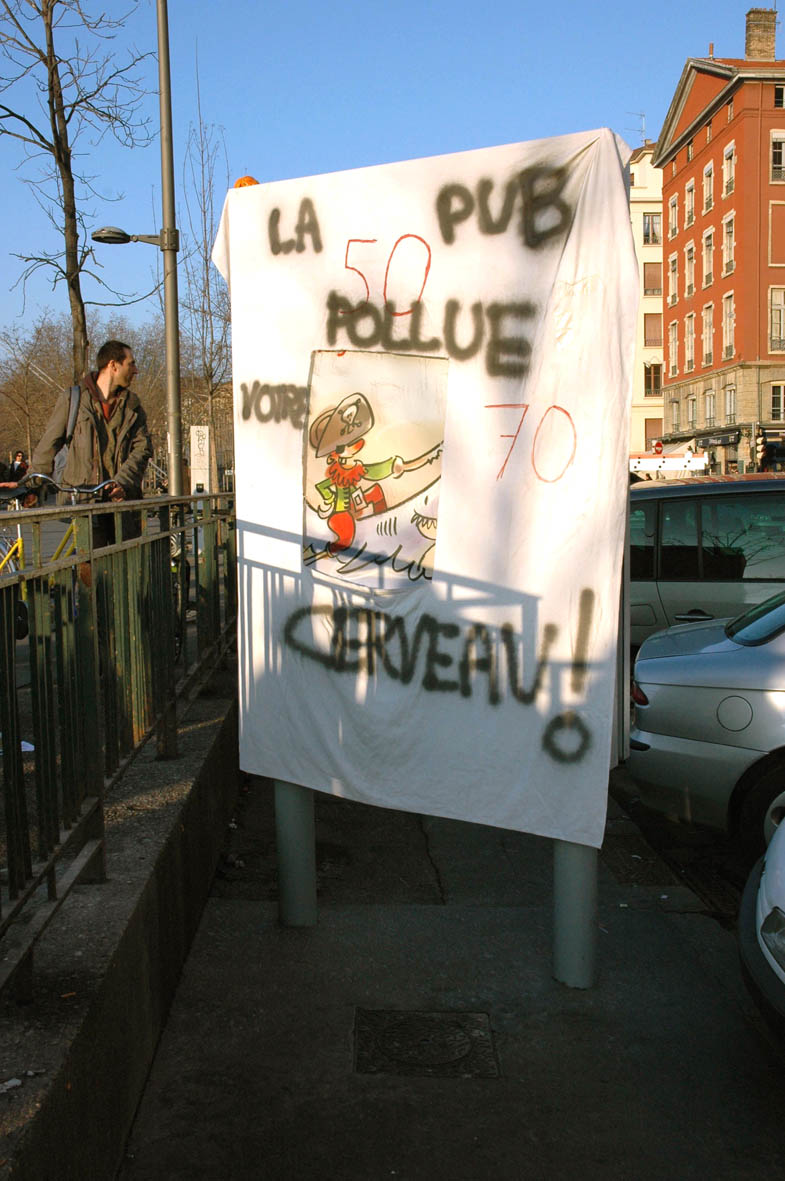 LA PUB
50
POLLUE
VOTRE
70
CERVEAU!